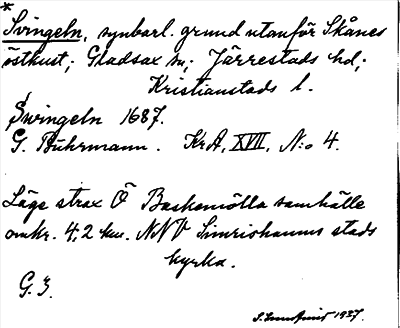 *
Svingeln, synbarl. grund utanför Skånes
östkust; Gladsax sn; Järrestads hd;
Kristianstads l.
Swingeln 1687.
G. Buhrmann. KrA, XVII, N:o 4.
Läge strax Ö Baskemölla samhälle
omkr. 4,2 km. NNV Simrishamns stads
kyrka.
G. 3.
1937.